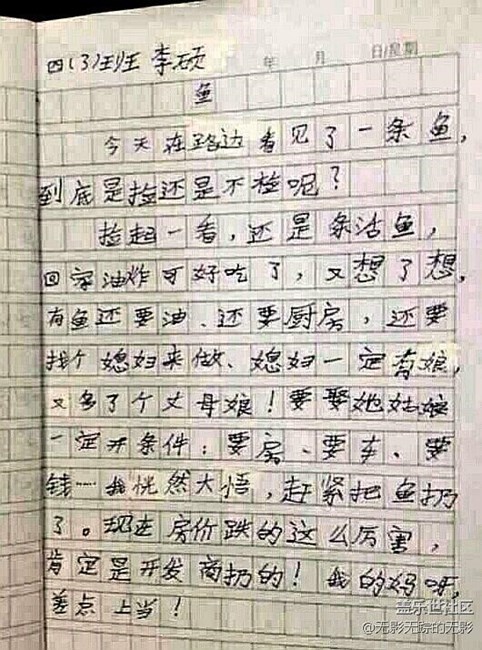 四(3)班 李硕
年 月 日/星期
鱼
今天在路边看见了一条鱼,
到底是捡还是不捡呢?
捡起一看,还是条活鱼,
回家油炸可好吃了,又想了想,
有鱼还要油、还要厨房,还要
找个媳妇来做、媳妇一定有娘,
又多了个丈母娘!要娶她姑娘
一定开条件:要房、要车、要
钱……我恍然大悟,赶紧把鱼扔
了。现在房价跌的这么厉害,
肯定是开发商扔的!我的妈呀,
差点上当!
盖乐世社区
@无影无踪的无影